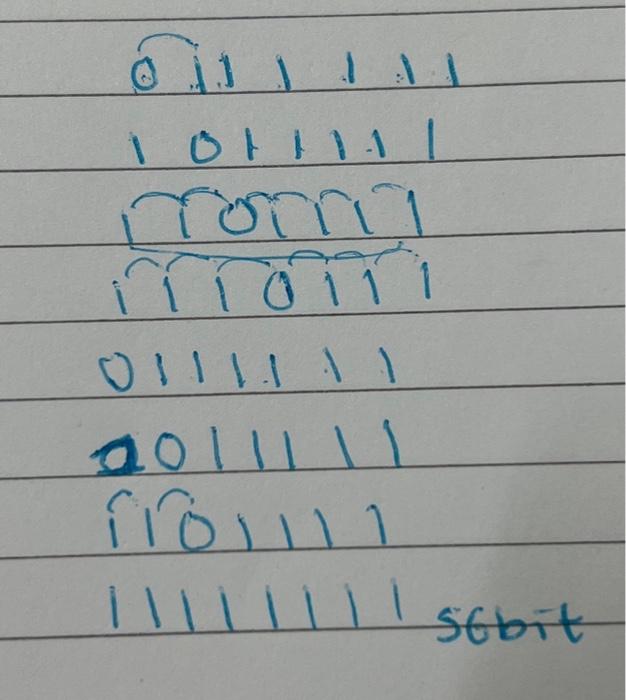 0 1 1 1 1 1 1
1 0 1 1 1 1 1
1 1 0 1 1 1 1
1 1 1 0 1 1 1
0 1 1 1 1 1 1
0 1 1 1 1 1
1 1 0 1 1 1 1
1 1 1 1 1 1 1 1 56bit